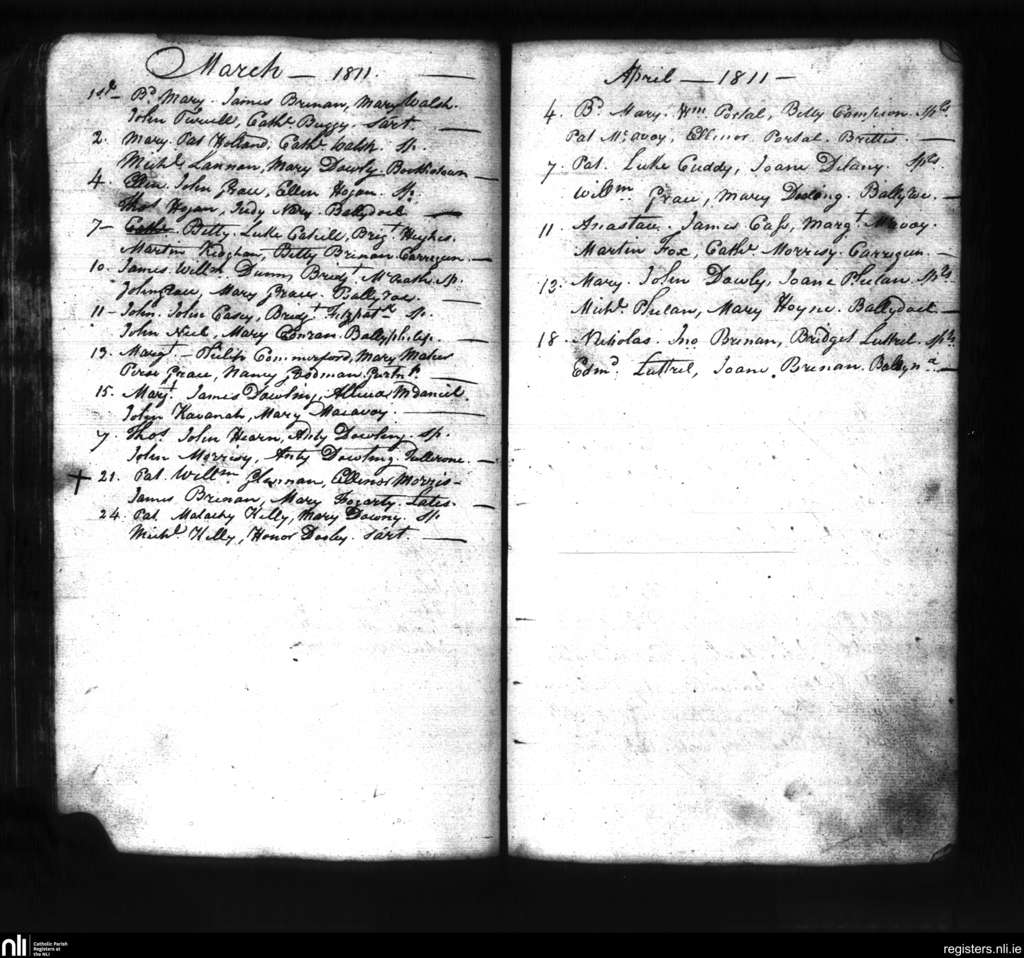 March — 1811. —
1st — Bd. Mary. James Brenan, Mary Walsh.
John Purcell, Cathe. Buggy. Sart. —
2. Mary. Pat Holland, Cathe. Walsh. Sp.
Michl. Lannan, Mary Dowly. —
4. Ellen. John Grace, Ellen Hogan. Sp.
Thos. Hogan, Judy Neary. Ballydoel —
7 — Betty. Luke Cahill, Brigt. Hughes.
Martin, Betty Brenan. Carrigeen. —
10. James. Willm. Dunn, Bridgt. Sp.
John Grace, Mary Grace. —
11 — John. John Casey, Bridgt. Fitzpatk. Sp.
John Neil, Mary Conran. Ballyphilip. —
13. Margt. — Philip Commerford, Mary Maher
Perse Grace, Nancy Goodman. —
15. Margt. James Dowling, McDaniel
John Kavanah, Mary Macavoy. —
Thos. John Hearn, Anty Dowling. Sp.
John Morrisy, Anty Dowling. —
21. Pat. Willm. Glennan, Ellinor Morris —
James Brenan, Mary Fogarty. —
24. Pat. Malachy Kelly, Mary Downy. Sp.
Michl. Kelly, Honor Dooley. Sart. —
April — 1811 —
4. Bd. Mary. Wm. Portal, Betty Campion. Sps.
Pat McAvoy, Ellinor Portal. —
7. Pat. Luke Cuddy, Joane Delany. Sps.
Grace, Mary —
11. James Cass, Margt. Macavoy.
Martin Fox, Cathe. Morrisy. Carrigeen. —
13. Mary. John Dowly, Joane Phelan. Sps.
Michl. Phelan, Mary Hoyne. Ballydoel —
18. Nicholas. Jno. Brenan, Bridget Luttrel. Sps.
Edmd. Luttrel, Joane Brenan. —
nli
Catholic Parish
Registers at
the NLI
registers.nli.ie